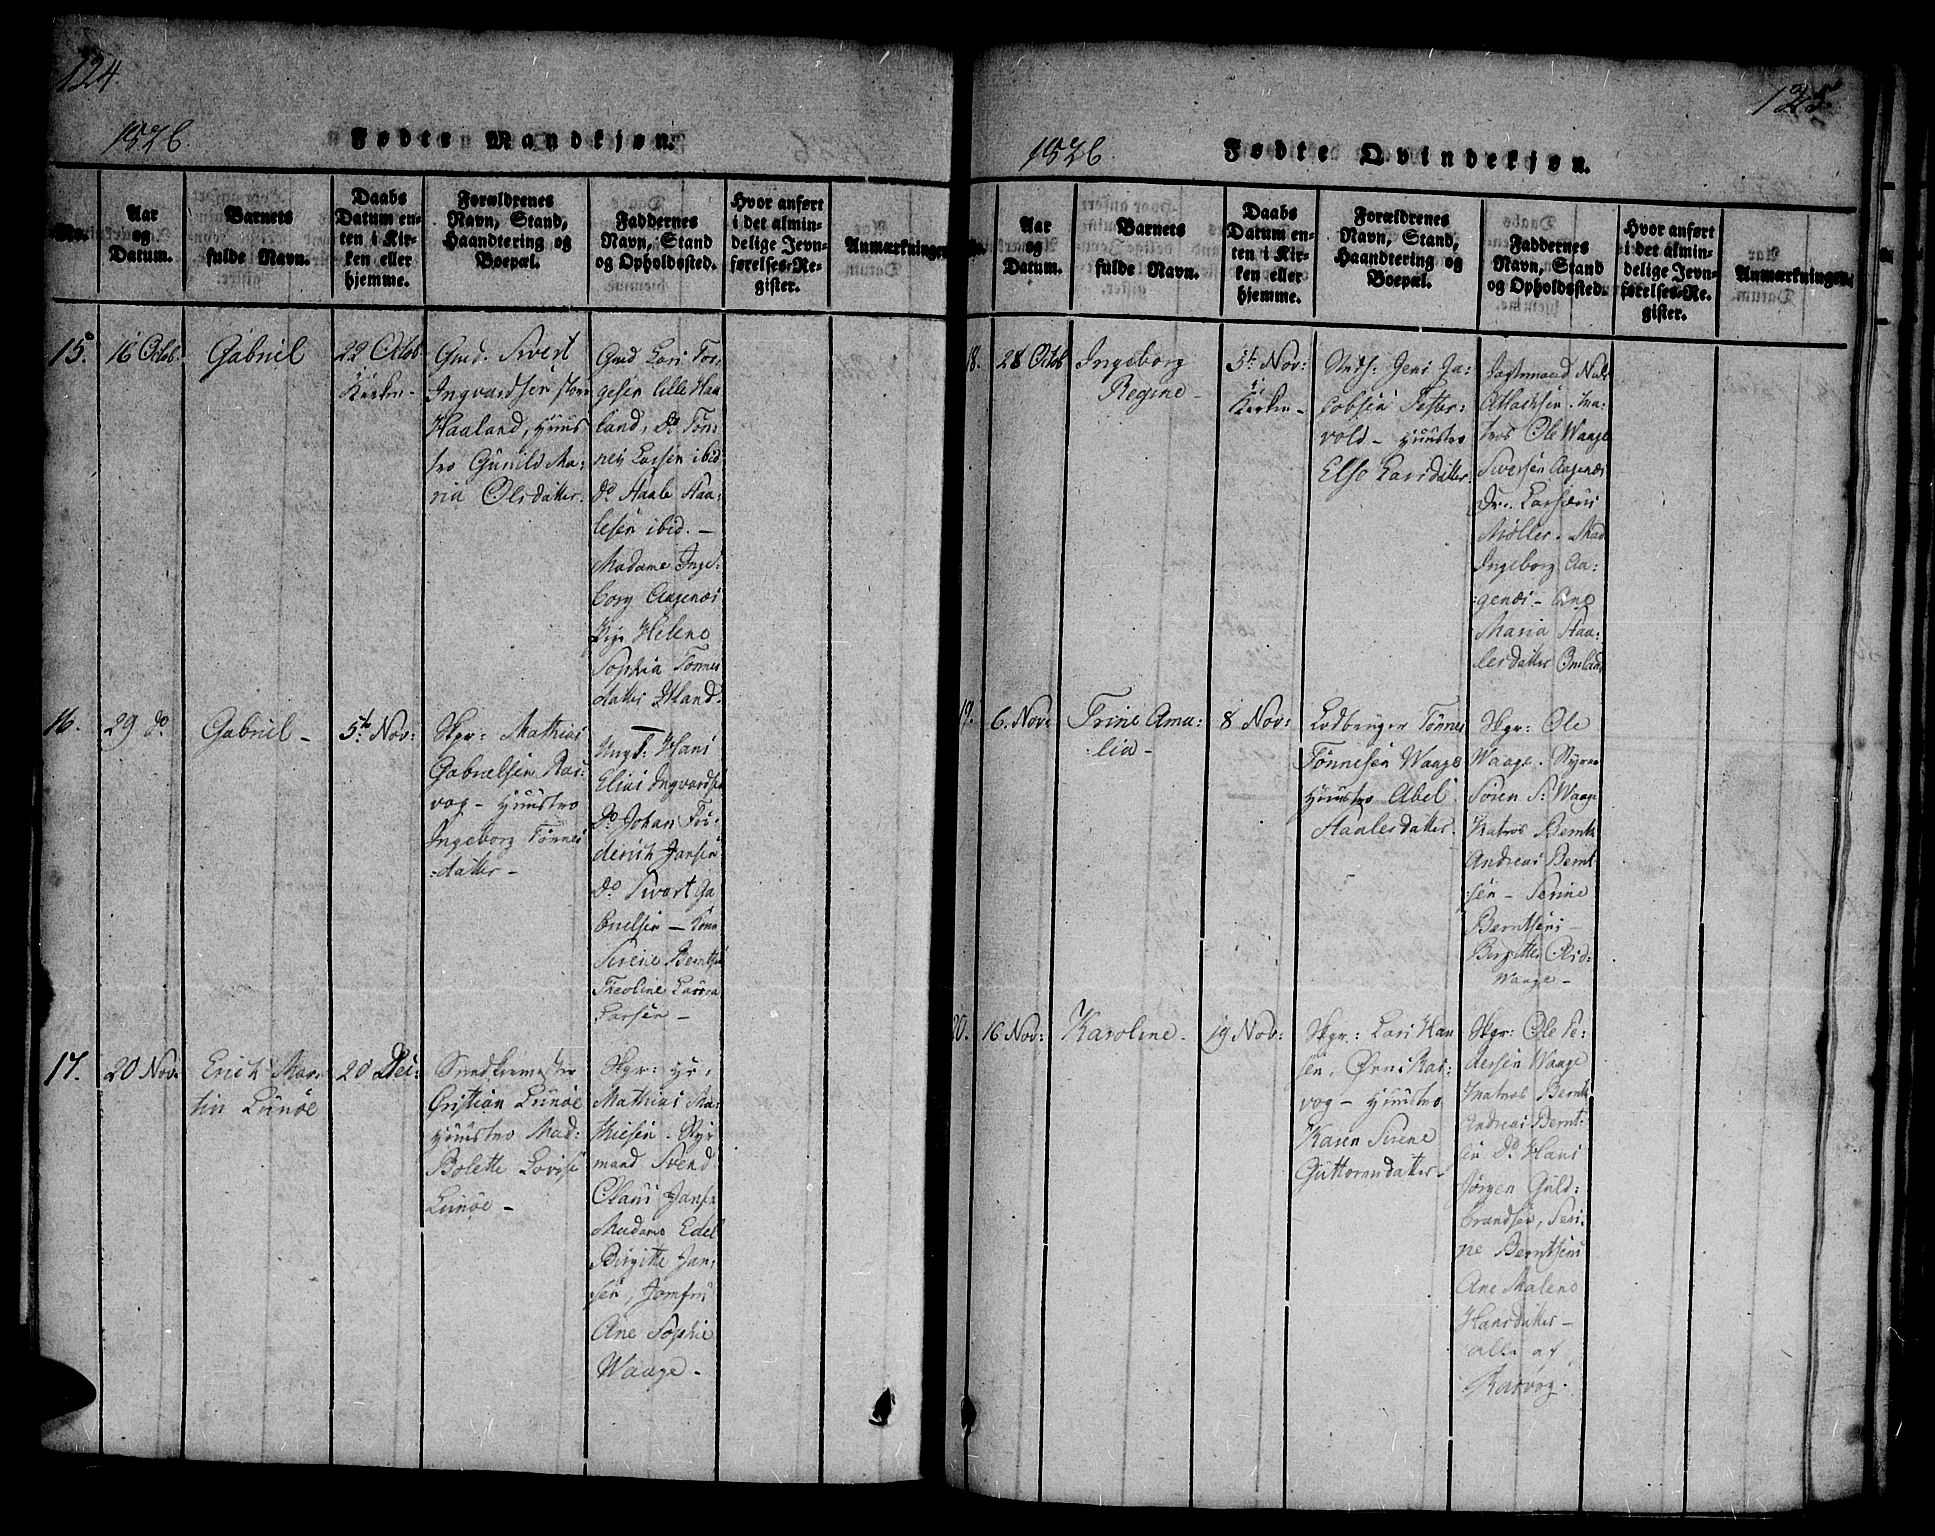 124.
1826.
Fødte Mandkjøn.
No.
Aar
og
Datum.
Barnets
fulde Navn.
Daabs
Datum en-
ten i Kir-
ken eller
hjemme.
Forældrenes
Navn, Stand,
Haandtering og
Boepæl.
Faddernes
Navn, Stand
og Opholdssted.
Hvor anført
i det almin-
delige Jevn-
førelses-Re-
gister.
Anmærkninger
15.
16 Octob.
Gabriel
22 Octob
Kirken-
Gmd. Sivert
Ingvardsen store
Haaland, Huus
tro Gunild Ma:
ria Olsdatter.
Gmd Lars Tor-
gesen lille Haa
land, Do Tøn-
nes Larsen ibid
Do Haale Haa-
lesen ibid. -
Madame Inge-
borg Aagenæs
Pige Helene
Sophia Tønnes
datter
16.
29 do
Gabriel -
5te Nov:
Skpr: Mathias
Gabrielsen Ras-
vog - Huustro
Ingeborg Tønnes
datter -
Ungk: Hans
Elias Ingvardsen
Do Johan Fri-
derich Jansen
Do Sivert Ga
brielsen - Kone
Serine Berntsen
Theoline Laurea
Larsen -
17.
20 Nov.
Erich Mar-
tin Lunøe
20 Dec:
Cristian Lunøe
Huustro Mad:
Bolette Lovise
Lunøe -
Skpr: Hr.
Mathias Ma-
thiesen. Styr
mand Svend
Claus Jansen
Madame Edel
Birgitte Jan-
sen, Jomfru
Ane Sophie
Waage -
125.
1826.
Fødte Qvindekjøn.
No.
Aar
og
Datum.
Barnets
fulde Navn.
Daabs
Datum en-
ten i Kir-
ken eller
hjemme.
Forældrenes
Navn, Stand,
Haandtering og
Boepæl.
Faddernes
Navn, Stand
og Opholdssted.
Hvor anført
i det almin-
delige Jevn-
førelses-Re-
gister.
Anmærkninger.
18.
28 Octob
Ingeborg
Regine -
5te Nov:
Kirken -
Jens Ja-
cobsen Tetter-
vold - Huustro
Else Larsdatter
Niels
Atlachsen. Ma-
tros Ole Waage
Siversen Aagenæs
Møller. Mad
Ingeborg Aa-
genæs - Ane
Maria Haa-
lesdatter
19.
6. Nov:
Trine Ama:
lia -
8 Nov:
Tønnes
Tønnesen Waage
Huustro Abel
Haalesdatter.
Skpr: Ole
Waage. Styrm
Søren S: Waage
Matros Bernt
Andreas Bernt-
sen - Serine
Berntsens -
Birgitte Olsd:
Waage -
20.
16 Nov:
Karoline -
19 Nov:
Skpr: Lars Han
sen, Ørns Ras-
vog - Huustro
Karen Serine
Guttormsdatter -
Skpr: Ole Pe-
dersen Waage
Matros Bernt
Andreas Bernt-
sen Do Hans
Jørgen Guld-
brandsen, Seri-
ne Berntsens
Ane Malene
Hansdatter -
alle af
Rasvog.